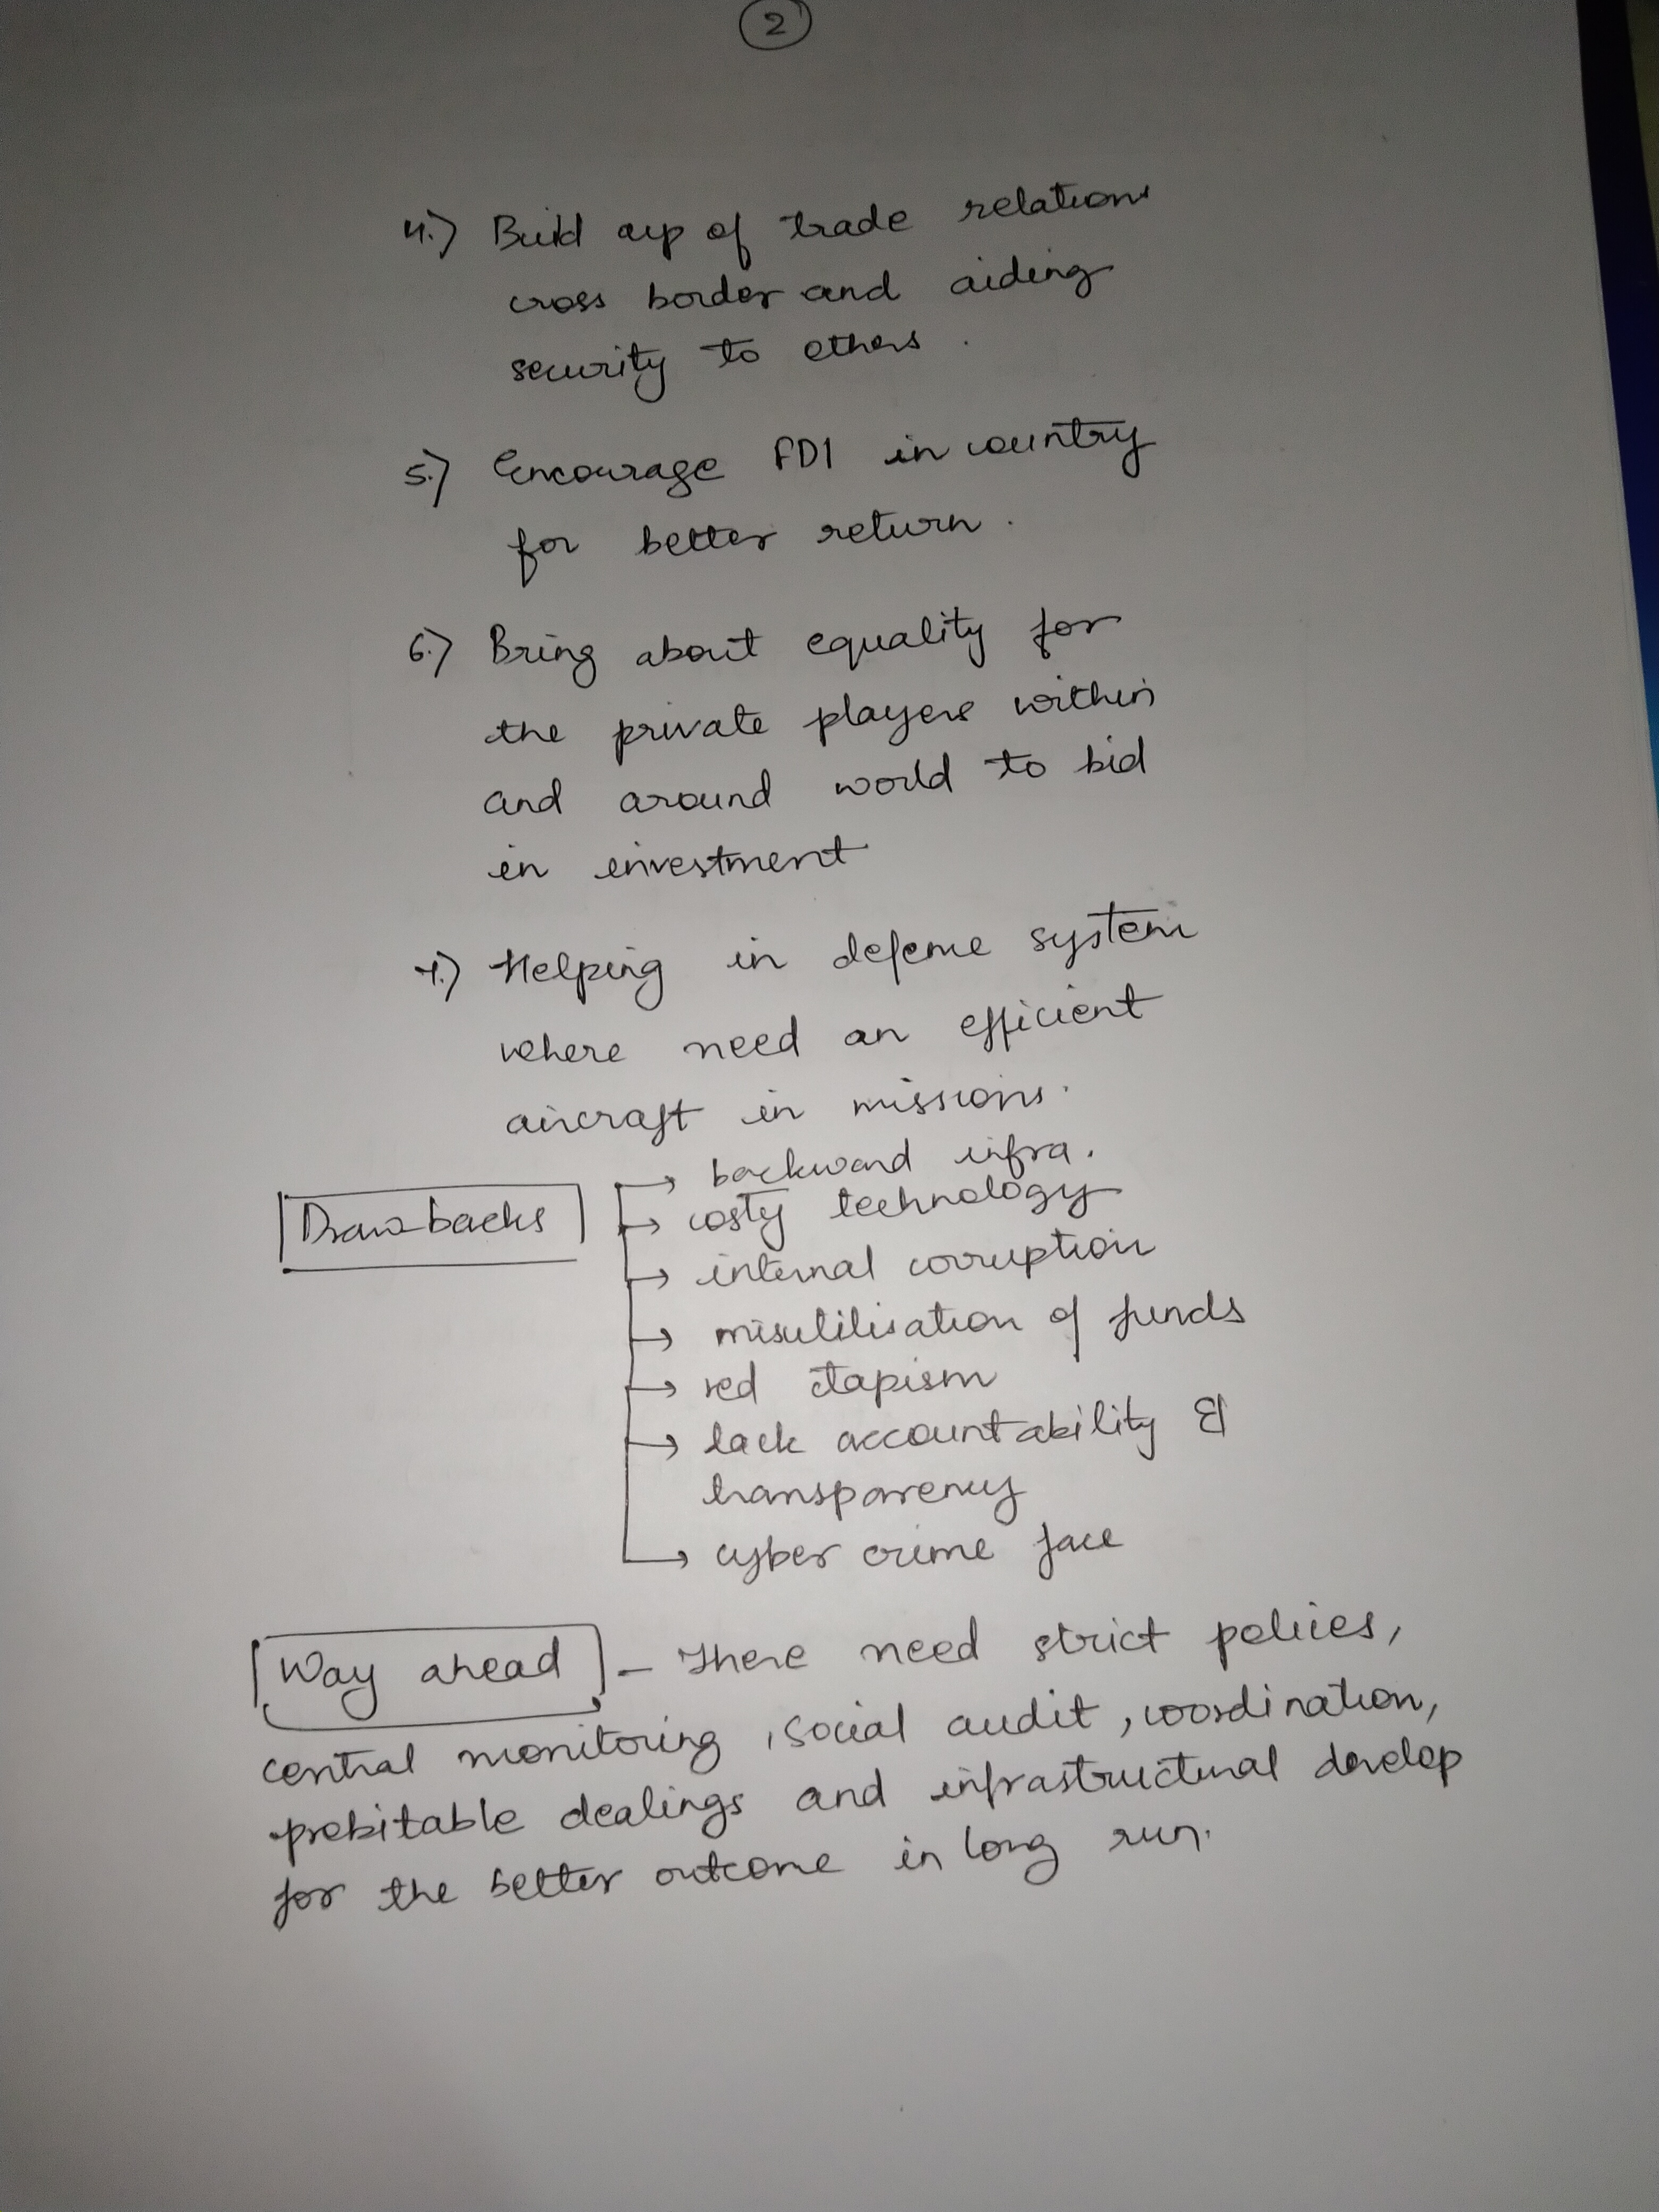 2
4.) Build up of trade relations
cross border and aiding
security to others.
5.) Encourage FDI in country
for better return.
6.) Bring about equality for
the private players within
and around world to bid
in investment
7.) Helping in defense system
where need an efficient
aircraft in missions.
→ backward infra.
Drawbacks → costy technology
→ internal corruption
→ misutilisation of funds
→ red tapism
→ lack accountability &
transparency
→ cyber crime face
Way ahead - There need strict policies,
central monitoring, social audit, coordination,
prebitable dealings and infrastructural develop
for the better outcome in long run.